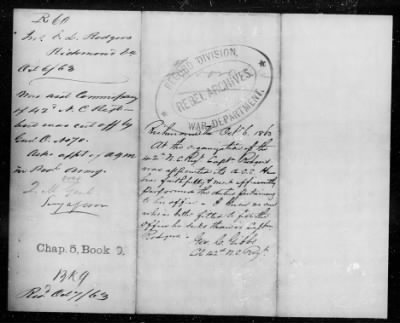 R 60
Rodgers
Richmond Va
Oct 6/63
Was asst Commissary
of 42d N.C. Regt
but was cut off by
Genl O. No 70.
Asks appt of a q.m.
in Regt army.
Q. M. Genl
Chap. 5, Book 9.
BKG
Recd Oct 7/63
RECORD DIVISION,
REBEL ARCHIVES,
WAR DEPARTMENT.
Richmond Va Oct 6, 1863
At the organization of the
42d N.C. Regt Capt Rodgers
was appointed its A.C.S. He
has faithfully & most efficiently
performed the duties pertaining
to his office. I know no one
who is better fitted to fill the
office he seeks than is Captain
Rodgers.
Geo. C. Gibbs
Col 42d N.C. Regt